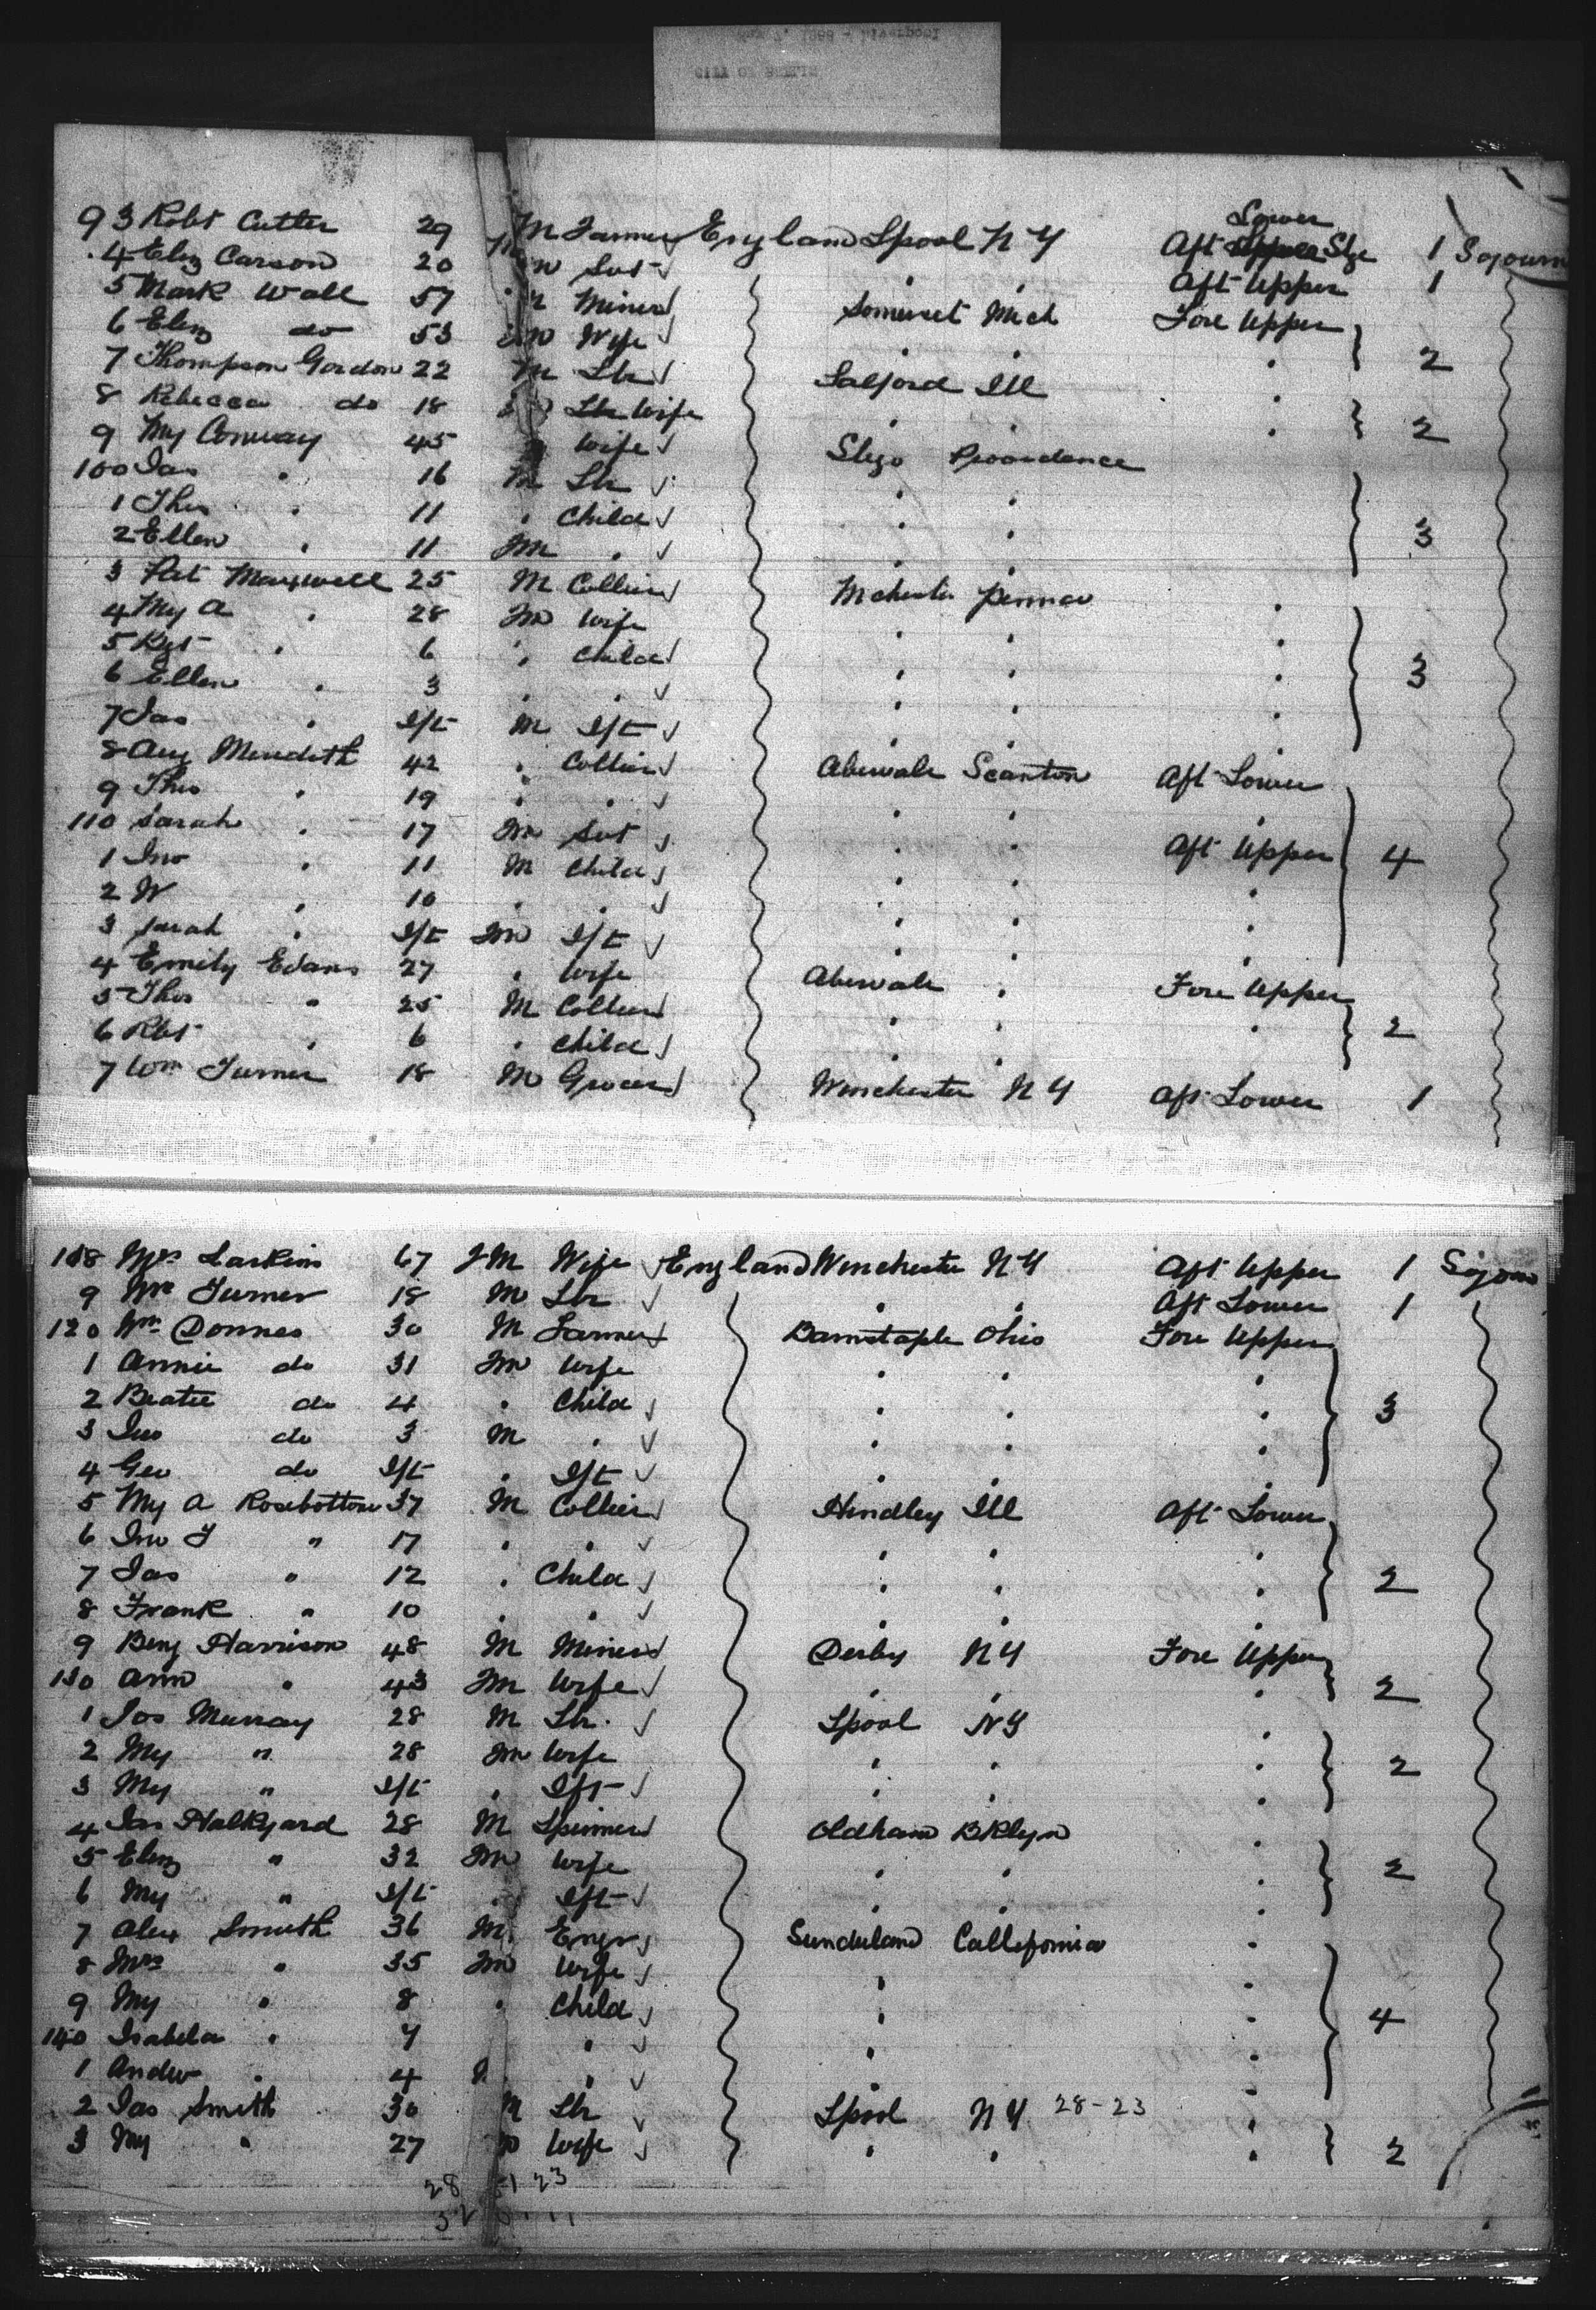 93 Robt Cutter 29 M Farmer England Lpool N Y Aft Lower Stge 1 Sojourn
4 Eliz Carson 20 Svt " " Aft Upper 1
5 Mark Wall 57 Miner Somerset Mich Fore Upper
6 Eliz do 53 Wife " " 2
7 Thompson Gordon 22 M Lbr Salford Ill "
8 Rebecca do 18 Lbr Wife " " " 2
9 My Conway 45 Wife Sligo Providence
100 Jas " 16 M Lbr " "
1 Thos " 11 " Child " " 3
2 Ellen " 11 Fm " " "
3 Pat Maxwell 25 M Collier Mchester Penna "
4 My A " 28 Fm Wife " " "
5 " 6 " Child " " " 3
6 Ellen " 3 " " " " "
7 Jas " Ift M Ift " " "
8 Meredith 42 " Collier Scanton Aft Lower
9 Thos " 19 " " " " "
110 Sarah " 17 Fm Svt " " Aft Upper 4
1 Jno " 11 M Child " " "
2 W " 10 " " " " "
3 Sarah " Ift Fm Ift " " "
4 Emily Evans 27 " Wife " Fore Upper
5 Thos " 25 M Collier " " " 2
6 Robt " 6 " Child " "
7 Wm Turner 18 M Grocer Winchester N Y Aft Lower 1
118 Mrs Larkin 67 FM Wife England Winchester N Y Aft Upper 1 Sojourn
9 Wm Turner 18 M Lbr " " Aft Lower 1
120 Wm Donnes 30 M Farmer Barnstaple Ohio Fore Upper
1 Annie do 31 Fm Wife " " "
2 Beatie do 4 " Child " " " 3
3 Jno do 3 M " " " "
4 Geo do Ift " Ift " " "
5 My A Rosebottom 37 M Collier Hindley Ill Aft Lower
6 Jno T " 17 " " " " "
7 Jas " 12 " Child " " " 2
8 Frank " 10 " " " " "
9 Benj Harrison 48 M Miner Derby N Y Fore Upper
130 Ann " 43 Fm Wife " " " 2
1 Jos Murray 28 M Lbr Lpool N Y "
2 My " 28 Fm Wife " " " 2
3 My " Ift " Ift " " "
4 Jas Halkyard 28 M Spinner Oldham BKlyn "
5 Eliz " 32 Fm Wife " " " 2
6 My " Ift " Ift " " "
7 Alex Smith 36 M Engr Sunderland Callifornia "
8 Mrs " 35 Fm Wife " "
9 My " 8 " Child " " 4
140 Isabela " 7 " " "
1 Andw " 4 " " "
2 Jas Smith 30 M Lbr Lpool N Y 28-23
3 My " 27 Wife " " " 2
28 51 23